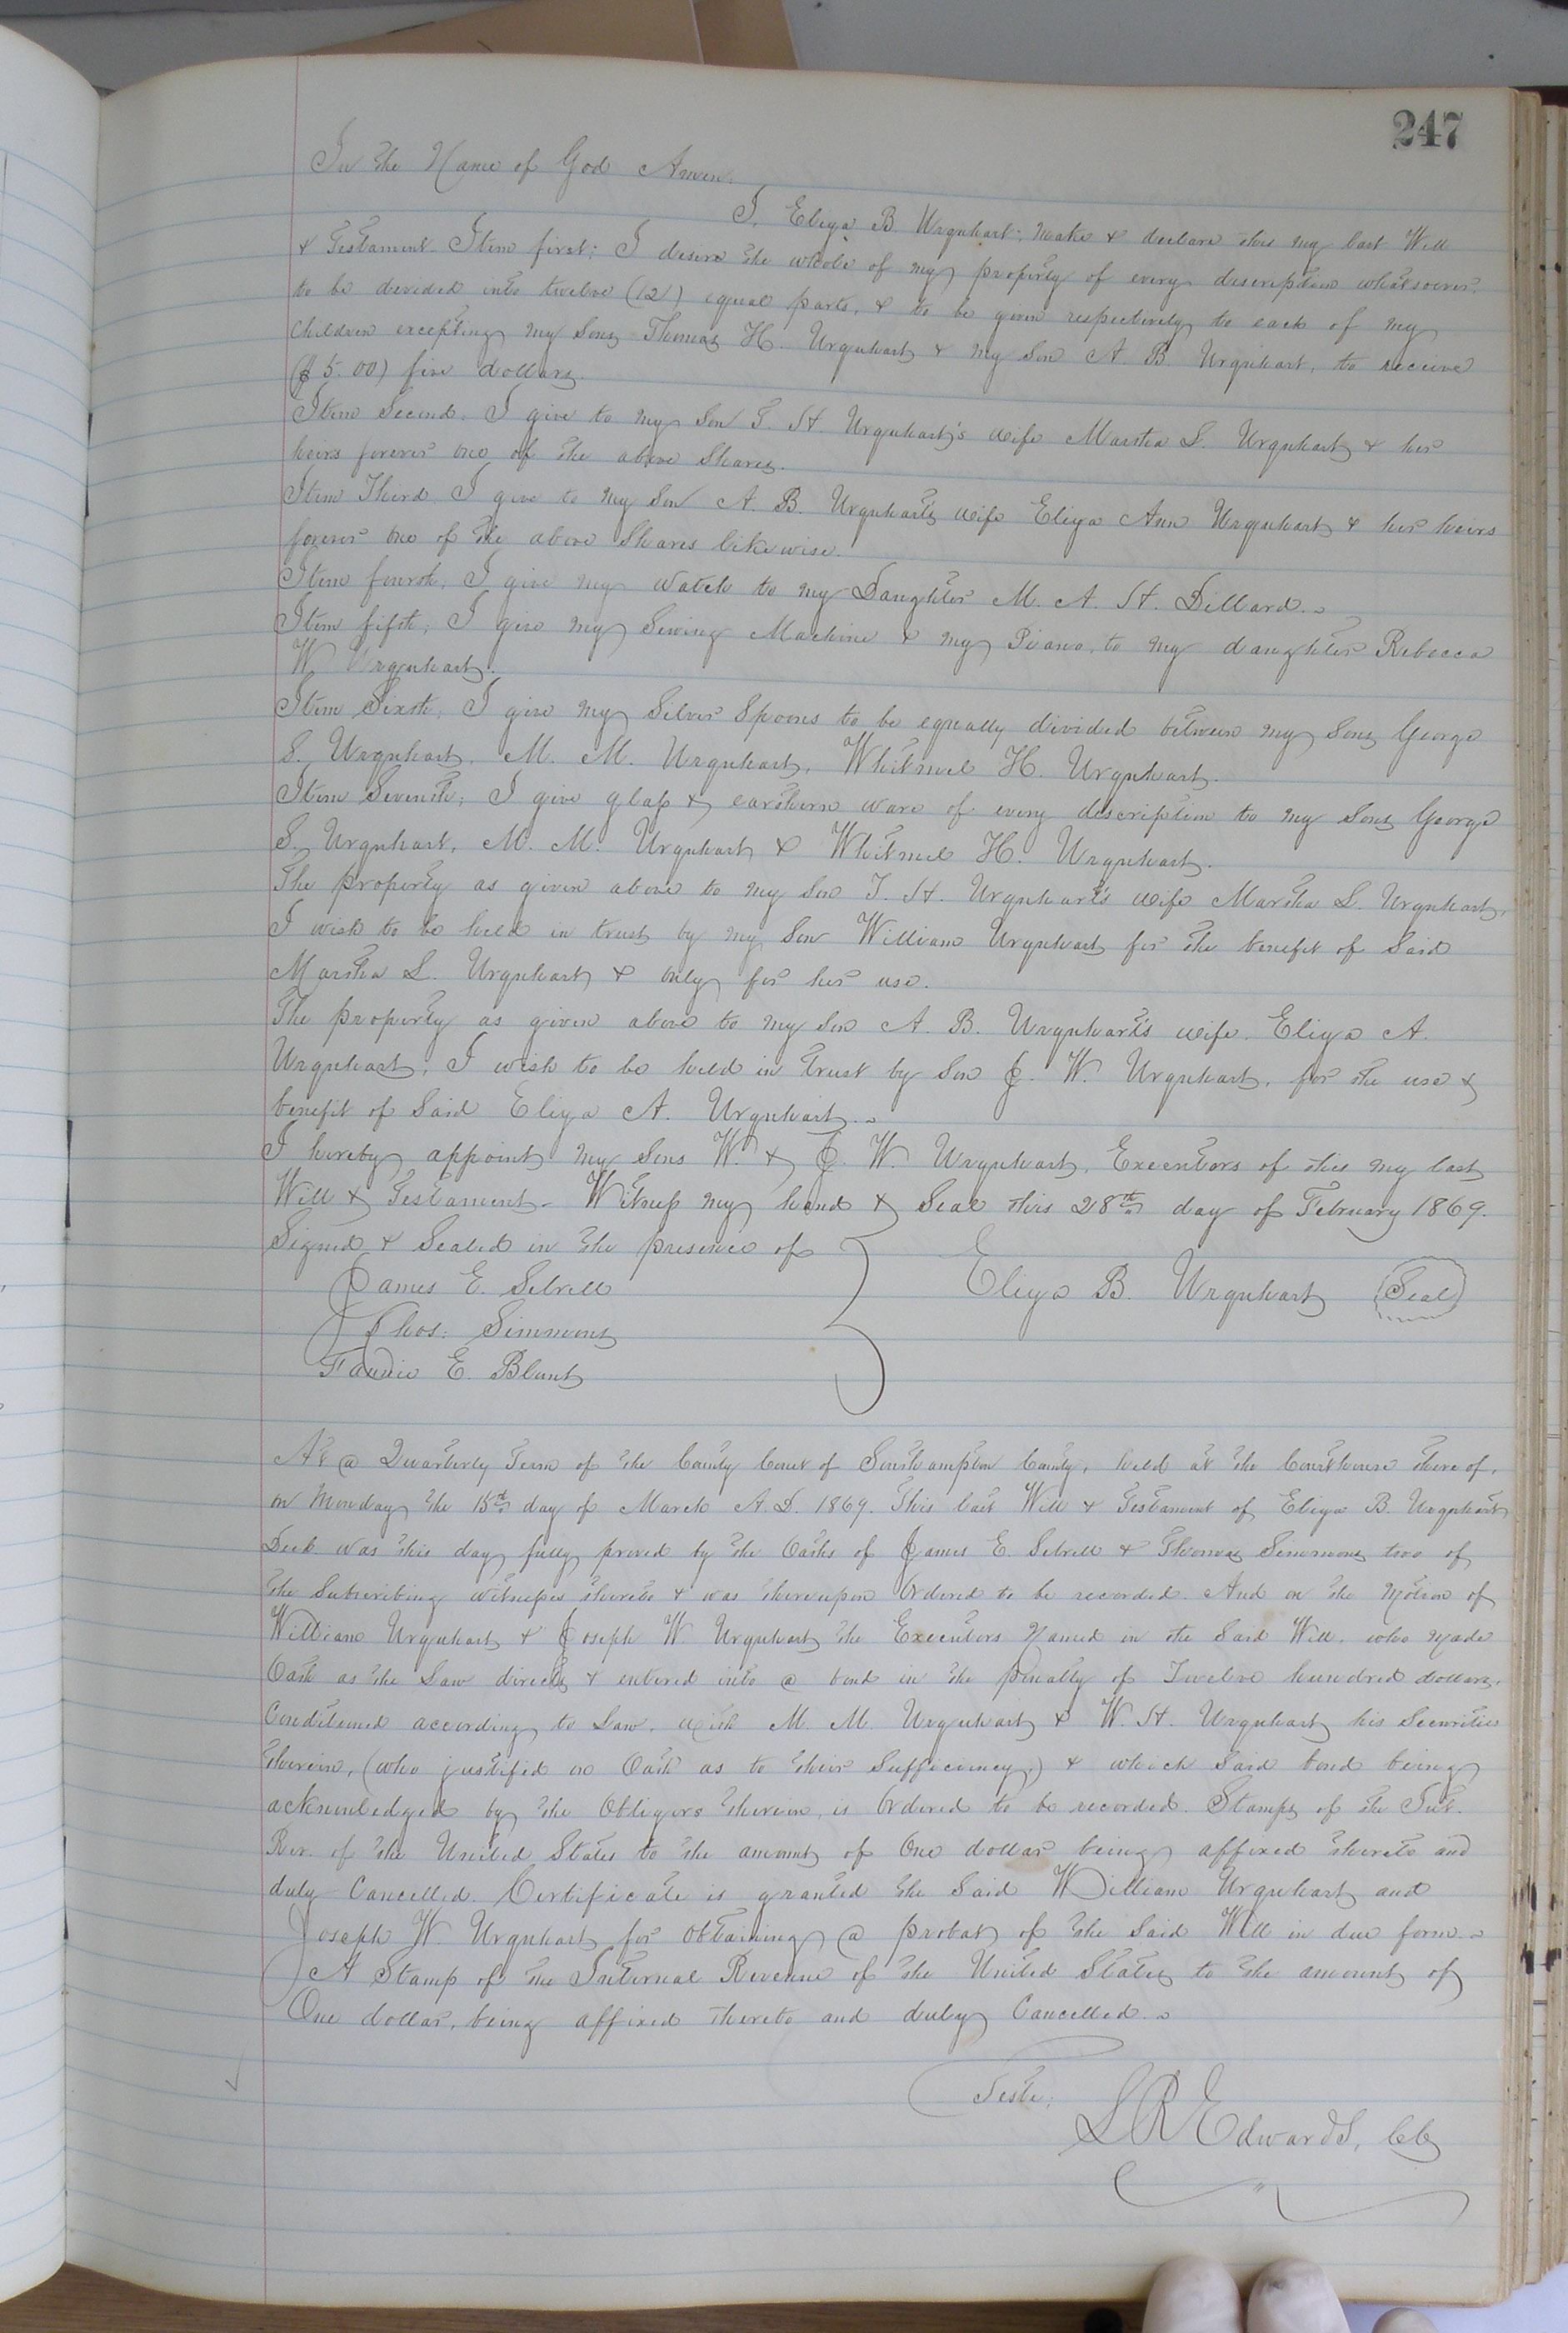 247
In the Name of God Amen.
I, Eliza B. Urquhart, make & declare this my last Will
& Testament. Item first; I desire the whole of my property of every description whatsoever,
to be divided into twelve (12) equal parts, & to be given respectively to each of my
children excepting my Sons Thomas H. Urquhart & my Son A. B. Urquhart, to receive
($5.00) five dollars.
Item Second, I give to my Son T. H. Urquhart's wife Martha L. Urquhart & her
heirs forever one of the above Shares.
Item Third, I give to my Son A. B. Urquhart's wife Eliza Ann Urquhart & her heirs
forever one of the above Shares likewise.
Item fourth, I give my watch to my Daughter M. A. H. Dillard.
Item fifth, I give my Sewing Machine & my Piano, to my daughter Rebecca
W. Urquhart.
Item Sixth, I give my Silver Spoons to be equally divided between my Sons George
S. Urquhart, M. M. Urquhart, Whitmel H. Urquhart.
Item Seventh; I give glass & earthern ware of every description to my Sons George
S. Urquhart, M. M. Urquhart & Whitmel H. Urquhart.
The property as given above to my Son T. H. Urquhart's wife Martha L. Urquhart,
I wish to be held in trust by my Son William Urquhart for the benefit of Said
Martha L. Urquhart & only for her use.
The property as given above to my Son A. B. Urquhart's wife, Eliza A.
Urquhart, I wish to be held in trust by Son J. W. Urquhart, for the use &
benefit of Said Eliza A. Urquhart.
I hereby appoint my Sons W. & J. W. Urquhart, Executors of this my last
Will & Testament. Witness my hand & Seal this 28th day of February 1869.
Signed & Sealed in the presence of
James E. Sebrell Eliza B. Urquhart Seal
Thos. Simmons
Fannie E. Blunt
At @ Quarterly Term of the County Court of Southampton County, held at the Courthouse thereof,
on Monday the 15th day of March A.D. 1869. This last Will & Testament of Eliza B. Urquhart
Decd. was this day fully proved by the Oaths of James E. Sebrell & Thomas Simmons two of
the Subscribing witnesses thereto & was thereupon Ordered to be recorded. And on the Motion of
William Urquhart & Joseph W. Urquhart the Executors Named in the Said Will, who Made
Oath as the Law directs & entered into @ bond in the Penalty of Twelve hundred dollars,
Conditioned according to Law, with M. M. Urquhart & W. H. Urquhart his Securities
therein, (who justified on Oath as to their Sufficiency,) & which Said bond being
acknowledged by the Obligors therein, is Ordered to be recorded. Stamps of the Int.
Rev. of the United States to the amount of One dollar being affixed thereto and
duly Cancelled. Certificate is granted the Said William Urquhart and
Joseph W. Urquhart for obtaining @ probat of the Said Will in due form.
A Stamp of the Internal Revenue of the United States to the amount of
One dollar, being affixed thereto and duly Cancelled.
Teste;
L R Edwards, Clk